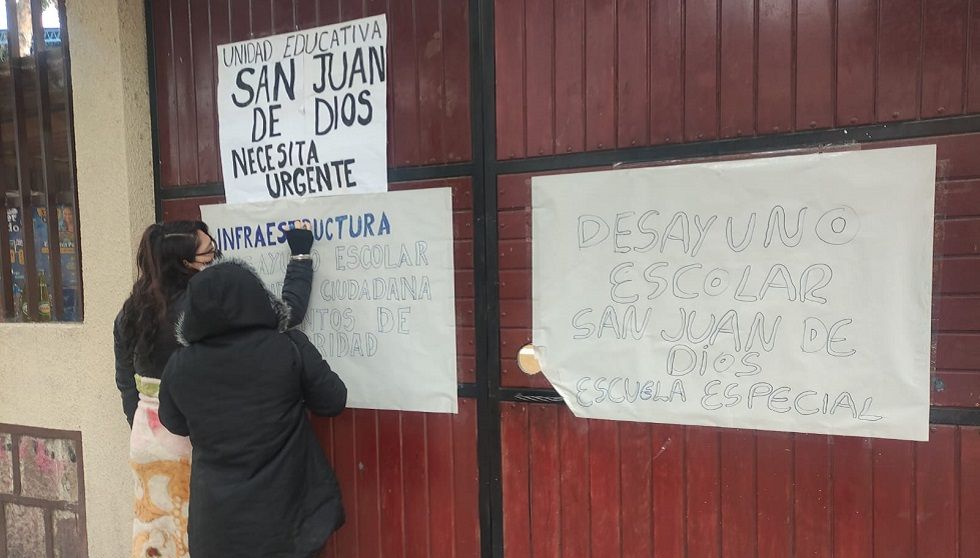 UNIDAD EDUCATIVA
SAN JUAN
DE DIOS
NECESITA
URGENTE
INFRAESTRUCTURA
ESCOLAR
CIUDADANA
DE
DESAYUNO
ESCOLAR
SAN JUAN DE
DIOS
ESCUELA ESPECIAL